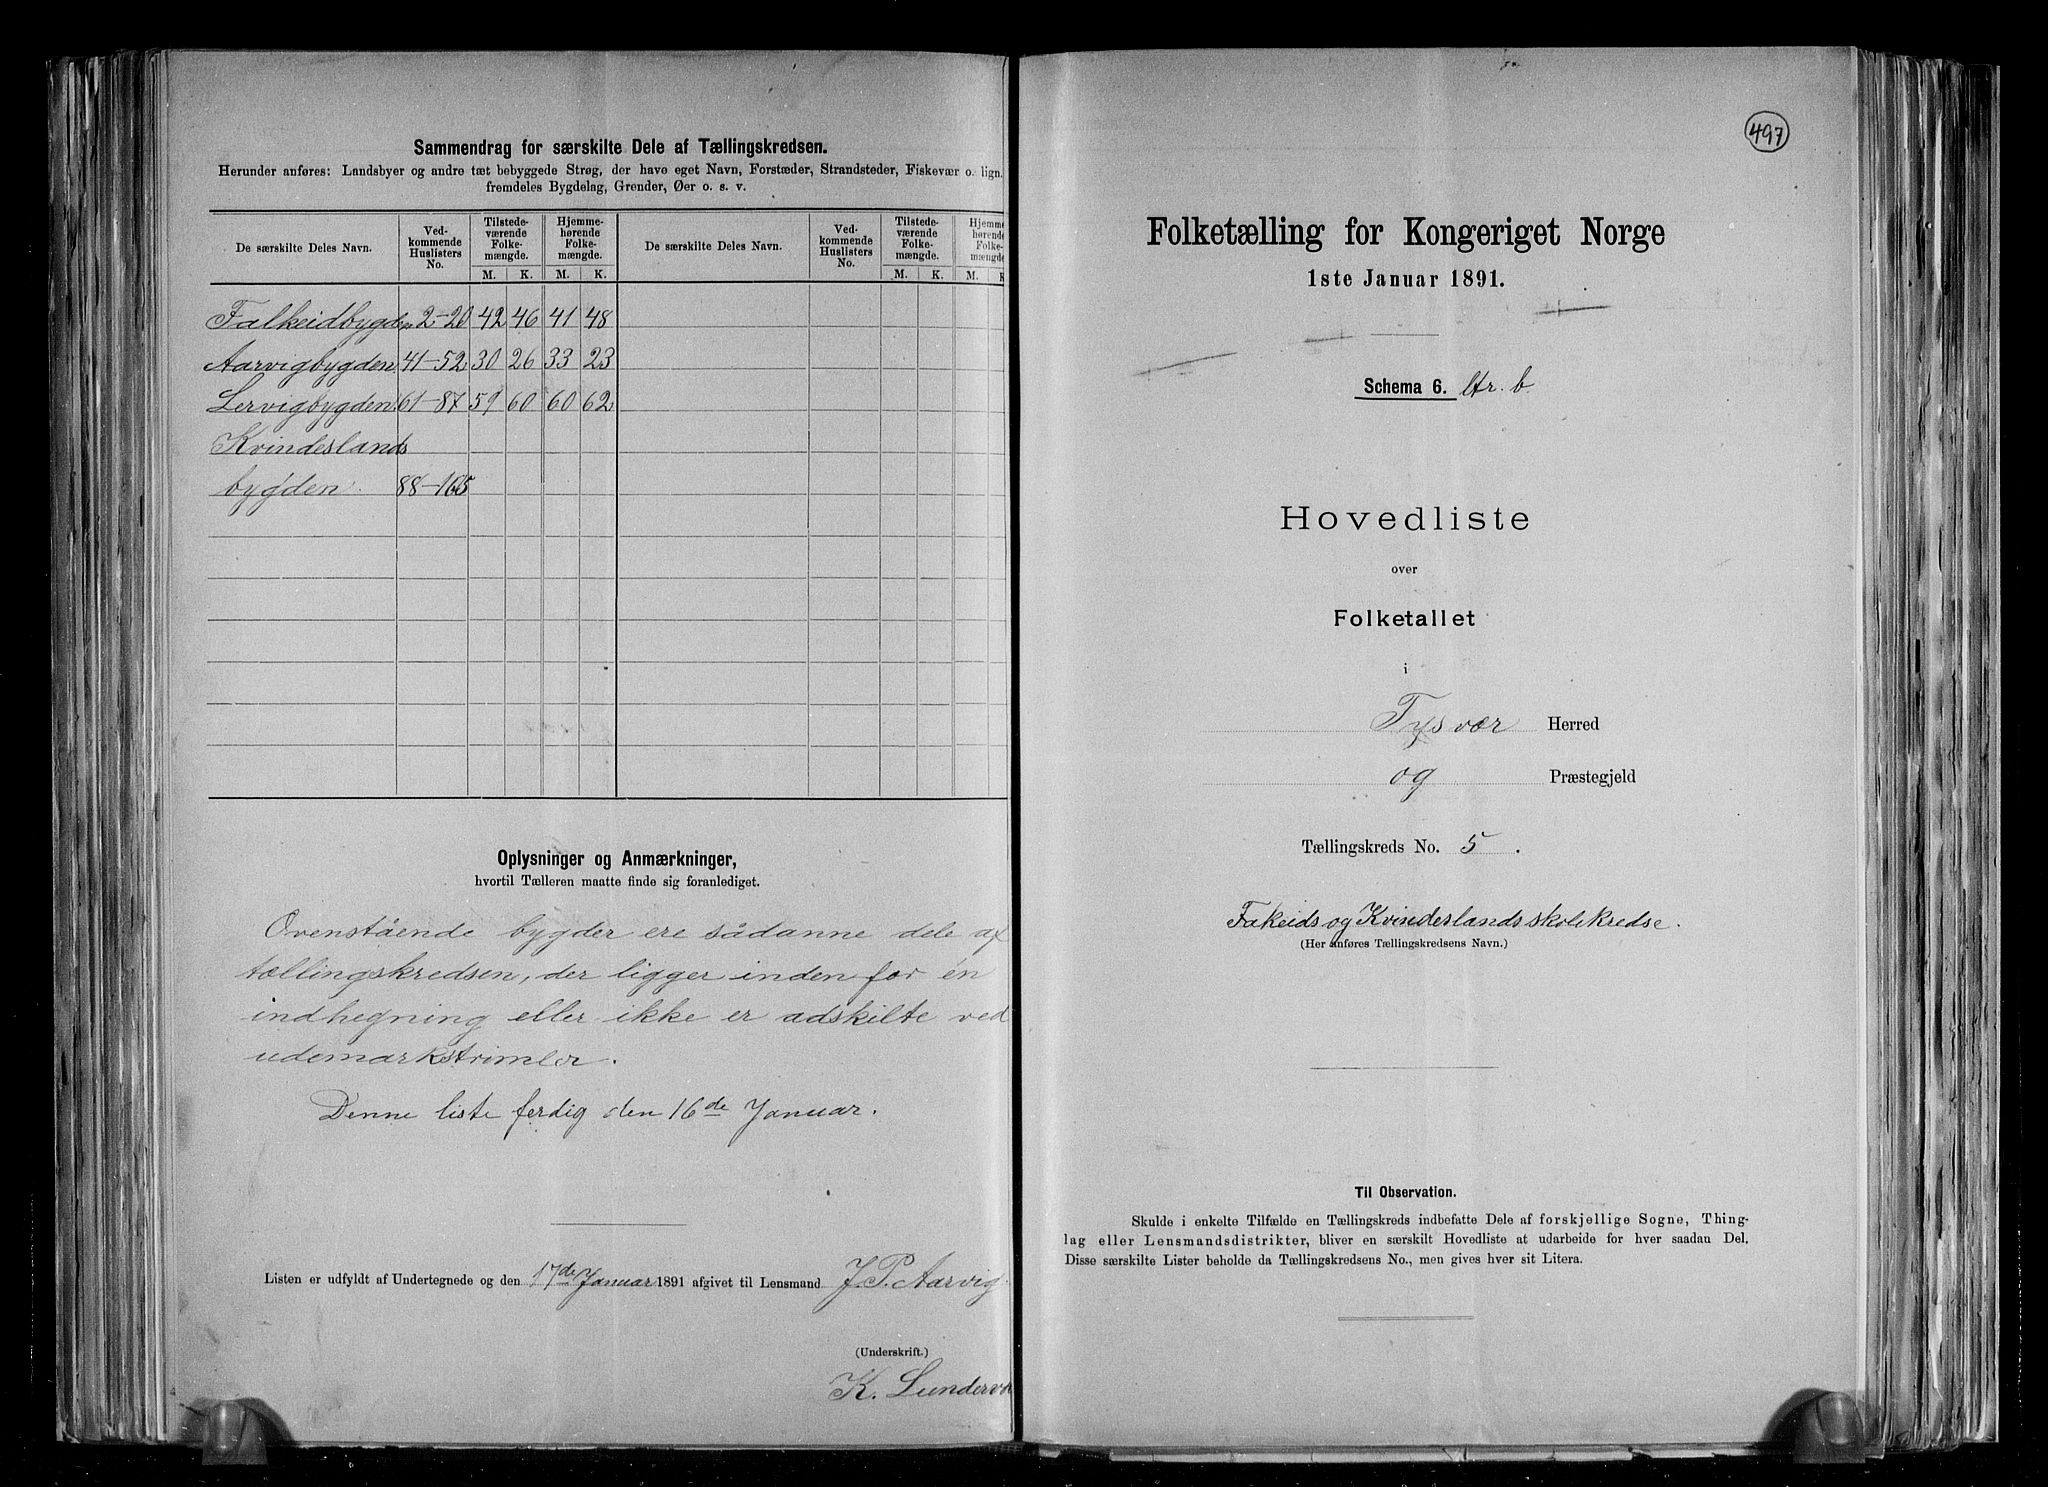 Sammendrag for særskilte Dele af Tællingskredsen.
Herunder anføres: Landsbyer og andre tæt bebyggede Strøg, der have eget Navn, Forstæder, Strandsteder, Fiskevær o. lign.
fremdeles Bygdelag, Grender, Øer o. s. v.
De særskilte Deles Navn. Ved-kommende Huslisters No. Tilstede-værende Folke-mængde. Hjemme-hørende Folke-mængde. De særskilte Deles Navn. Ved-kommende Huslisters No. Tilstede-værende Folke-mængde. Hjemme-hørende Folke-mængde
M. K. M. K. M. K. M. K
Falkeidbygden 2-20 42 46 41 48
Aarvigbygden 41-52 30 26 33 23
Lervigbygden 61-87 59 60 60 62
Kvindeslands
bygden. 88-165
Oplysninger og Anmærkninger,
hvortil Tælleren maatte finde sig foranlediget.
Ovenstående bygder ere sådanne dele af
tællingskredsen, der ligger inden for én
indhegning eller ikke er adskilte ved
udemarkstrimler.
Denne liste ferdig den 16de Januar.
Listen er udfyldt af Undertegnede og den 17de Januar 1891 afgivet til Lensmand J P. Aarvig
(Underskrift.)
K. Lundervo
497
Folketælling for Kongeriget Norge
1ste Januar 1891.
Schema 6. ltr. b
Hovedliste
over
Folketallet
i
Tysvær Herred
og Præstegjeld
Tællingskreds No. 5.
Fakeids og Kvinderlands skolekredse.
(Her anføres Tællingskredsens Navn.)
Til Observation.
Skulde i enkelte Tilfælde en Tællingskreds indbefatte Dele af forskjellige Sogne, Thing-
lag eller Lensmandsdistrikter, bliver en særskilt Hovedliste at udarbeide for hver saadan Del.
Disse særskilte Lister beholde da Tællingskredsens No., men gives hver sit Litera.